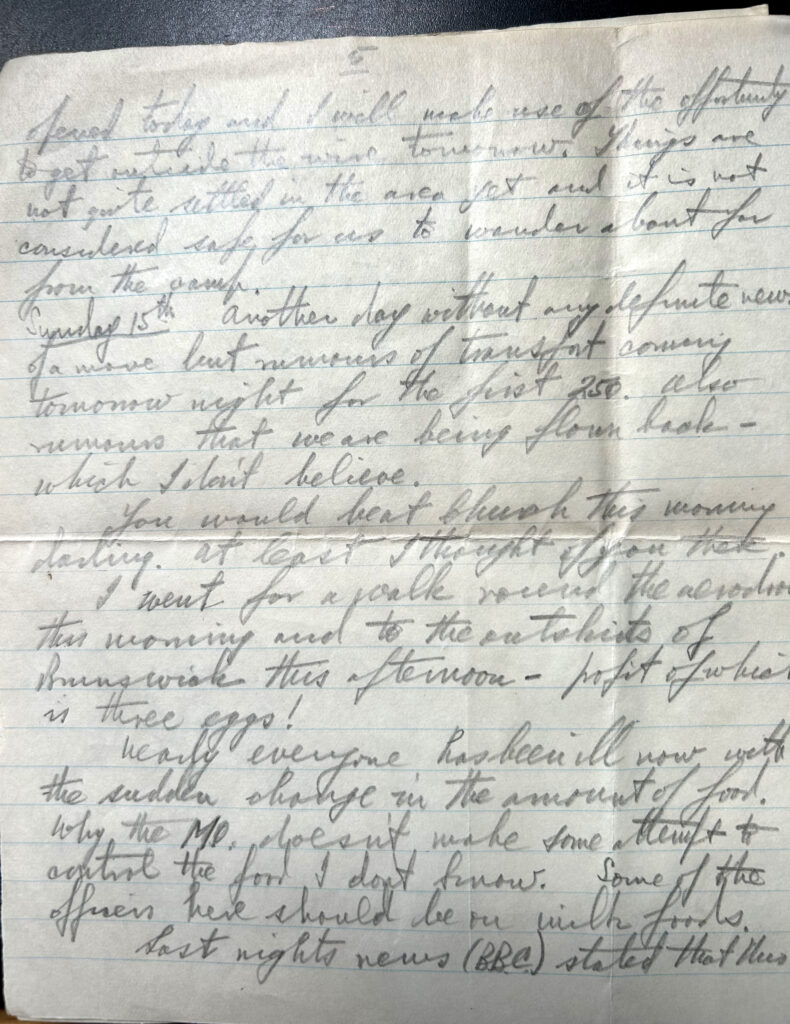 5
opened today and I will make use of the opportunity
to get outside the wire tomorrow. Things are
not quite settled in the area yet and it is not
considered safe for us to wander about far
from the camp.
Sunday 15th Another day without any definite news
of a move but rumours of transport coming
tomorrow night for the first 250. Also
rumours that we are being flown back -
which I don't believe.
You would be at Church this morning
darling. At least I thought of you there.
I went for a walk round the aerodro
this morning and to the outskirts of
Brunswick this afternoon - profit of which
is three eggs!
Nearly everyone has been ill now with
the sudden change in the amount of food.
Why the MO. doesn't make some attempt to
control the food I dont know. Some of the
officers here should be on milk foods.
Last nights news (B.B.C.) stated that this